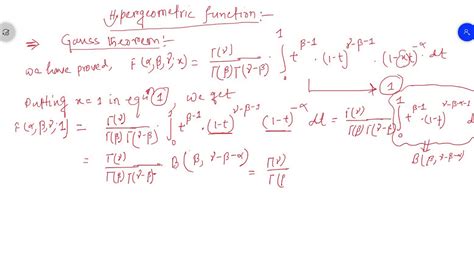 Hypergeometric function:-
⇒ Gauss theorem:-
We have proved, F(α,β,γ,x) = Γ(γ) / Γ(β)Γ(γ-β) · ∫₀¹ t^(β-1) · (1-t)^(γ-β-1) · (1-xt)^(-α) · dt
→ ①
Putting x=1 in equⁿ ①, we get
F(α,β,γ,1) = Γ(γ) / Γ(β)Γ(γ-β) · ∫₀¹ t^(β-1) · (1-t)^(γ-β-1) (1-t)^(-α) dt = Γ(γ) / Γ(β)Γ(γ-β) ∫₀¹ t^(β-1) · (1-t)^(γ-β-α-1)
B(β, γ-β-α)
= Γ(γ) / Γ(β)Γ(γ-β) · B(β, γ-β-α) = Γ(γ) / Γ(β